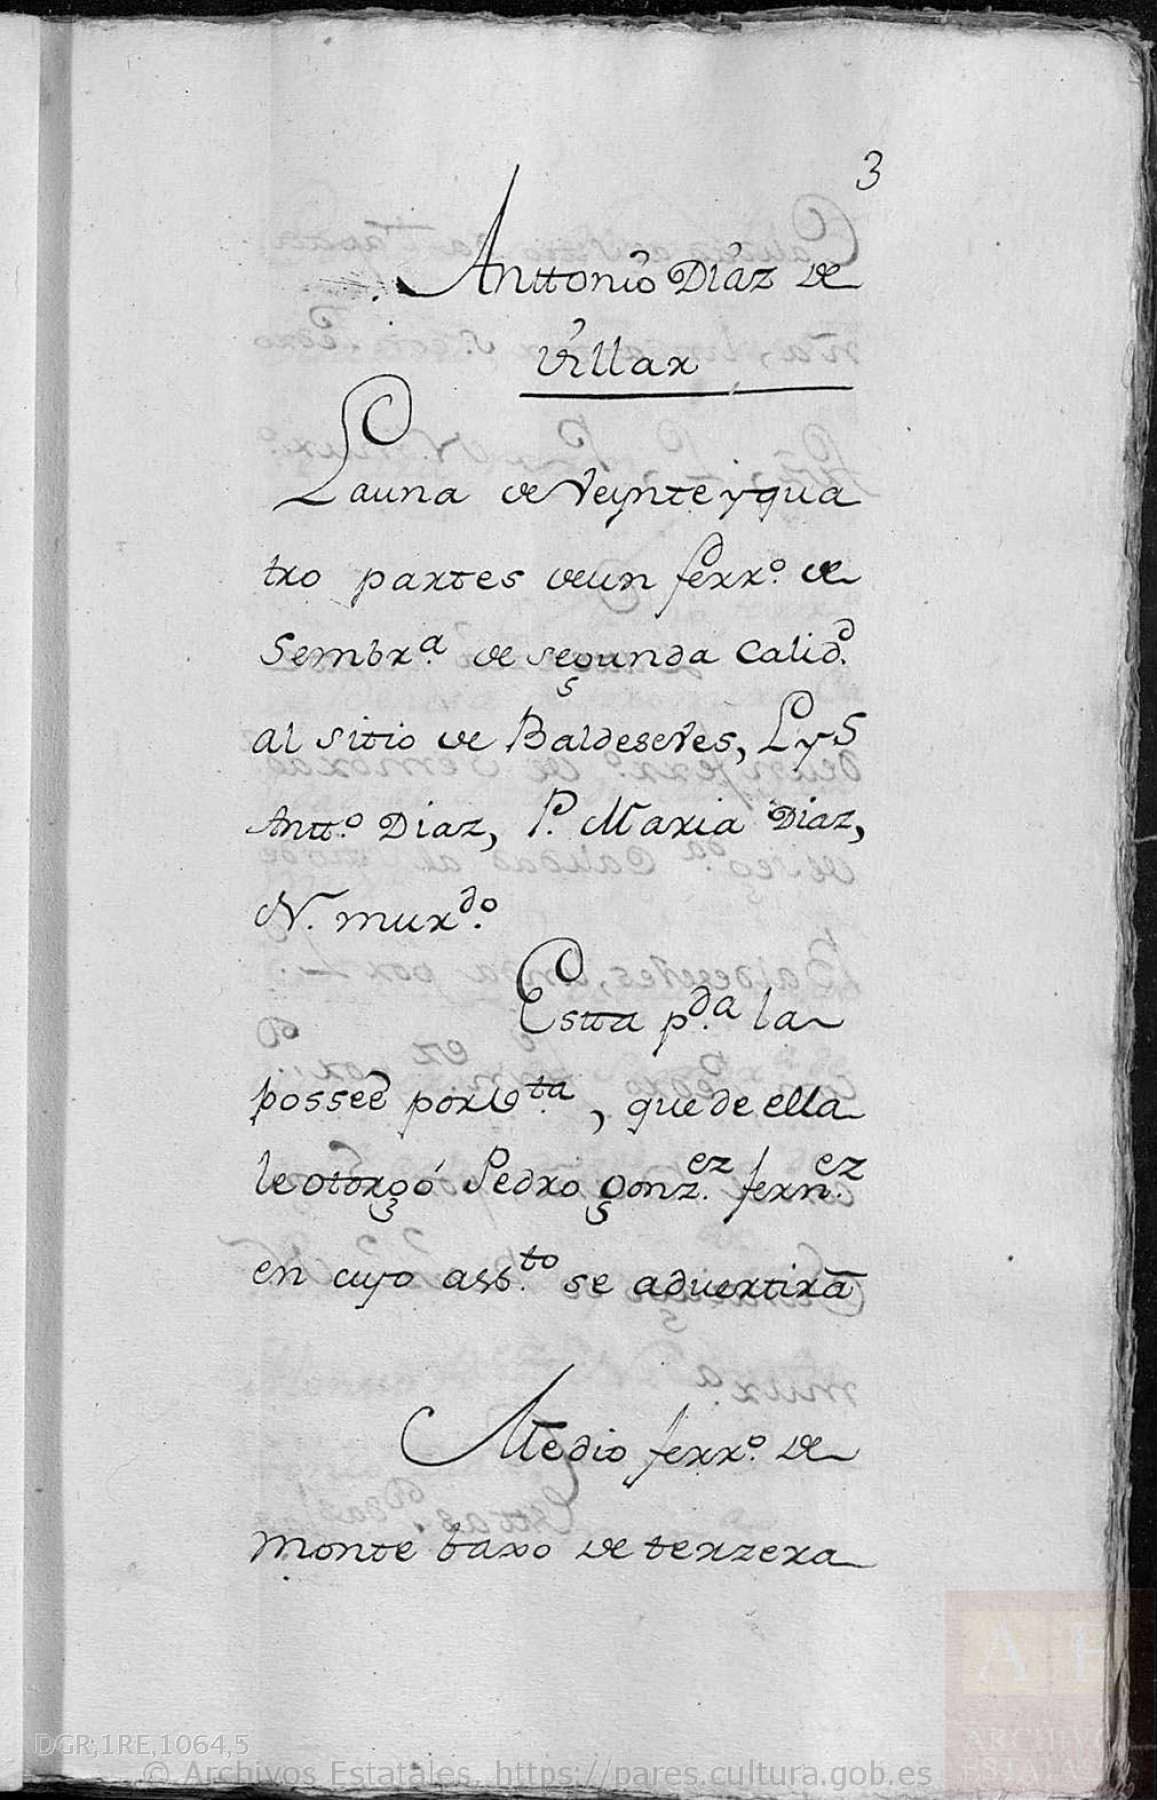 3
Anttonio Diaz de
Villar
La una de Veynte y qua
tro partes de un ferr.º de
Sembr.ª de segunda Calid.d
al sitio de Baldeseves, L y S
Antt.º Diaz, P. Maria Diaz,
N. mur.do
Estta p.da la
posseê por V.ta, que de ella
le otorgó Pedro gonz.ez fern.ez
en cuyo ass.to se advertirá
Medio ferr.º de
monte baxo de terzera
DGR,1RE,1064,5
© Archivos Estatales, https://pares.cultura.gob.es